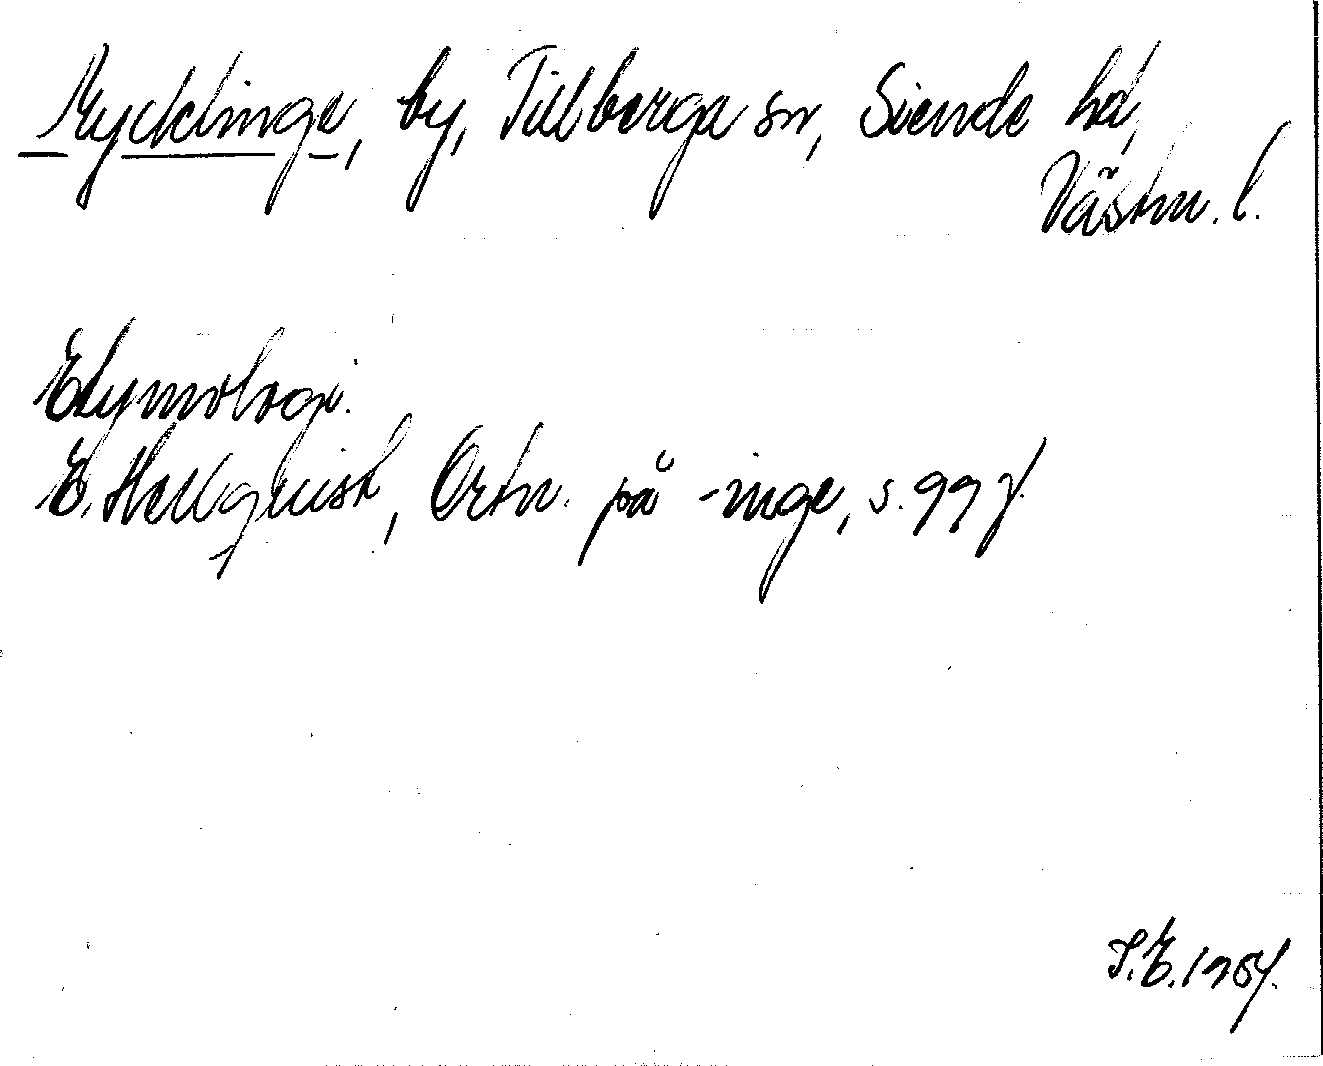 Mycklinge, by, Tillberga sn, Siende hd,
Västm. l.
Etymologi.
E. Hellquist, Ortn. på -inge, s. 99 f.